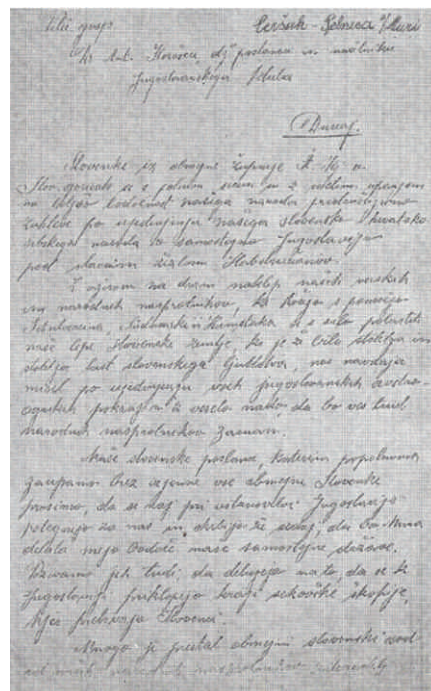 Velec. gosp.
Ceršak - Selnica o/Muri
Dr. Ant. Korošcu, drž. poslancu in načelniku
Jugoslovanskega kluba
Dunaj.
Slovenke iz obmejne županije Št. Ilj v
Slov. goricah se s polnim srcem in z velikim upanjem
na boljšo bodočnost našega naroda pridružujemo
zahteve po ujedinjenju našega slovensko hrvatsko
srbskega naroda v samostojno Jugoslavijo
pod slavnim žezlom Habsburžanov.
Z ozirom na drzni naklep naših verskih
in narodnih nasprotnikov, ki hočejo s pomočjo
Schulvereina, Südmarke in Heimstatta si s silo polastiti
naše lepe slovenske zemlje, ko je že bila stoletja in
stoletja last slovenskega ljudstva, nas navdaja
misel po ujedinjenju vseh jugoslovanskih avstro-
ogrskih pokrajin z veselo nado da bo ves trud
narodnih nasprotnikov zaman.
Naše slovenske poslance, katerim popolnoma
zaupamo brez izjeme vse obmejne Slovenke
prosimo, da se naj pri ustanovitvi Jugoslavije
potegnejo za nas in skrbijo že sedaj, da bo Mura
delala mejo bodoče naše samostojne države.
Pozivamo jih tudi, da delujejo na to, da se k
Jugoslaviji priklopijo kraji sekovske škofije,
kjer prebivajo Slovenci.
Mnogo je prestal obmejni slovenski
od naših narodnih nasprotnikov